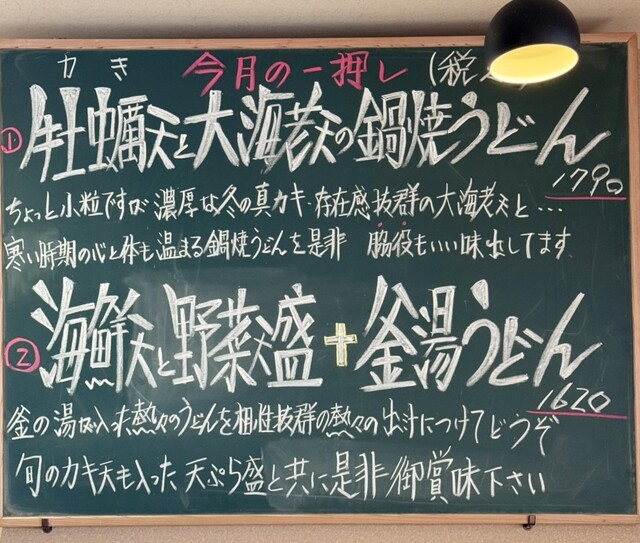 かき
今月の一押し (税
① 牡蠣天と大海老天の鍋焼うどん
1790
ちょっと小粒ですが濃厚な冬の真カキ、存在感抜群の大海老天と…
寒い時期の心と体も温まる鍋焼うどんを是非 脇役もいい味出してます
② 海鮮天と野菜天盛+釜湯うどん
1620
釜の湯が入った熱々のうどんを相性抜群の熱々の出汁につけてどうぞ
旬のカキ天も入った天ぷら盛と共に是非御賞味下さい